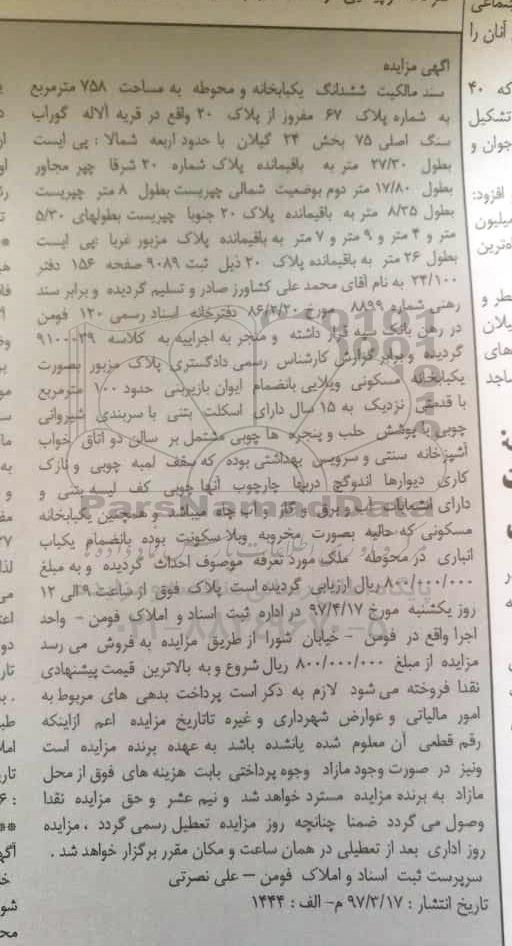 آگهی مزایده
سند مالکیت ششدانگ یکبابخانه و محوطه به مساحت ۷۵۸ مترمربع
به شماره پلاک ۶۷ مفروز از پلاک ۲۰ واقع در قریه آلاله گوراب
سنگ اصلی ۷۵ بخش ۲۴ گیلان با حدود اربعه شمالا : پی ایست
بطول ۲۷/۳۰ متر به باقیمانده پلاک شماره ۲۰ شرقا چهر مجاور
بطول ۱۷/۸۰ متر دوم بوضعیت شمالی چهریست بطول ۸ متر چهریست
بطول ۸/۳۵ متر به باقیمانده پلاک ۲۰ جنوبا چهریست بطولهای ۵/۳۰
متر و ۴ متر و ۹ متر و ۷ متر به باقیمانده پلاک مزبور غربا پی ایست
بطول ۲۶ متر به باقیمانده پلاک ۲۰ ذیل ثبت ۹۰۸۹ صفحه ۱۵۶ دفتر
۲۴/۱۰۰ به نام آقای محمد علی کشاورز صادر و تسلیم گردیده و برابر سند
رهنی شماره ۸۸۹۹ مورخ ۸۶/۲/۲۰ دفترخانه اسناد رسمی ۱۲۰ فومن
در رهن بانک سپه قرار داشته و منجر به اجراییه به کلاسه ۹۱۰۰۰۳۹
گردیده و برابر گزارش کارشناس رسمی دادگستری پلاک مزبور بصورت
یکبابخانه مسکونی ویلایی بانضمام ایوان بازیربنی حدود ۱۰۰ مترمربع
با قدمتی نزدیک به ۱۵ سال دارای اسکلت بتنی با سربندی شیروانی
چوبی با پوشش حلب و پنجره ها چوبی مشتمل بر سالن دو اتاق خواب
آشپزخانه سنتی و سرویس بهداشتی بوده که سقف لمبه چوبی و نازک
کاری دیوارها اندوگچ دربها چارچوب آنها چوبی کف لیسه بتنی و
دارای انشعابات آب و برق و گاز و آب چاه میباشد و همچنین یکبابخانه
مسکونی که حالیه بصورت مخروبه وبلا سکونت بوده بانضمام یکباب
انباری در محوطه ملک مورد تعرفه موصوف احداث گردیده و به مبلغ
۸۰۰/۰۰۰/۰۰۰ ریال ارزیابی گردیده است پلاک فوق از ساعت ۹ الی ۱۲
روز یکشنبه مورخ ۹۷/۴/۱۷ در اداره ثبت اسناد و املاک فومن - واحد
اجرا واقع در فومن - خیابان شورا از طریق مزایده به فروش می رسد
مزایده از مبلغ ۸۰۰/۰۰۰/۰۰۰ ریال شروع و به بالاترین قیمت پیشنهادی
نقدا فروخته می شود لازم به ذکر است پرداخت بدهی های مربوط به
امور مالیاتی و عوارض شهرداری و غیره تاتاریخ مزایده اعم ازاینکه
رقم قطعی آن معلوم شده یانشده باشد به عهده برنده مزایده است
ونیز در صورت وجود مازاد وجوه پرداختی بابت هزینه های فوق از محل
مازاد به برنده مزایده مسترد خواهد شد و نیم عشر و حق مزایده نقدا
وصول می گردد ضمنا چنانچه روز مزایده تعطیل رسمی گردد ، مزایده
روز اداری بعد از تعطیلی در همان ساعت و مکان مقرر برگزار خواهد شد .
سرپرست ثبت اسناد و املاک فومن – علی نصرتی
تاریخ انتشار : ۹۷/۳/۱۷ م- الف : ۱۴۴۴
ParsNamadData